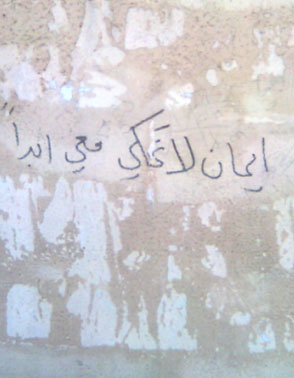 ايمان لا تحاكي معي ابدا